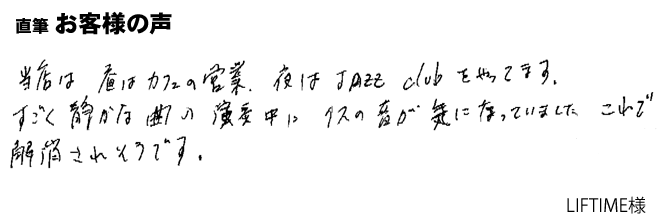 直筆 お客様の声
当店は 昼はカフェの営業、夜は JAZZ club をやってます。
すごく静かな曲の演奏中に イスの音が気になっていました これで
解消されそうです。
LIFTIME様